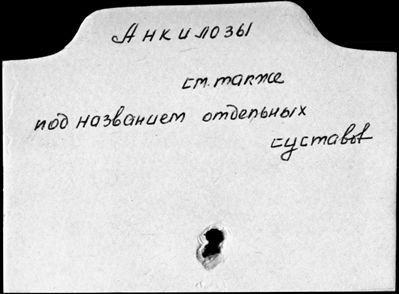 Анкилозы
см. также
под названием отдельных
суставов